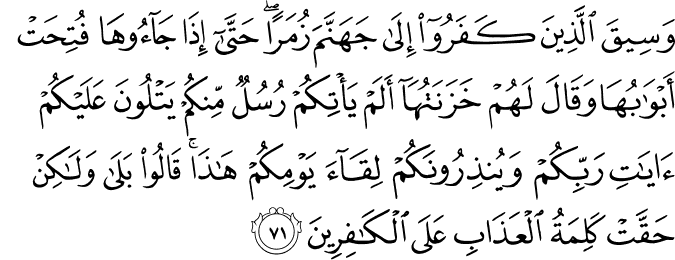 وَسِيقَ ٱلَّذِينَ كَفَرُوٓا۟ إِلَىٰ جَهَنَّمَ زُمَرًا ۖ حَتَّىٰٓ إِذَا جَآءُوهَا فُتِحَتْ
أَبْوَٰبُهَا وَقَالَ لَهُمْ خَزَنَتُهَآ أَلَمْ يَأْتِكُمْ رُسُلٌ مِّنكُمْ يَتْلُونَ عَلَيْكُمْ
ءَايَٰتِ رَبِّكُمْ وَيُنذِرُونَكُمْ لِقَآءَ يَوْمِكُمْ هَٰذَا ۚ قَالُوا۟ بَلَىٰ وَلَٰكِنْ
حَقَّتْ كَلِمَةُ ٱلْعَذَابِ عَلَى ٱلْكَٰفِرِينَ ٧١